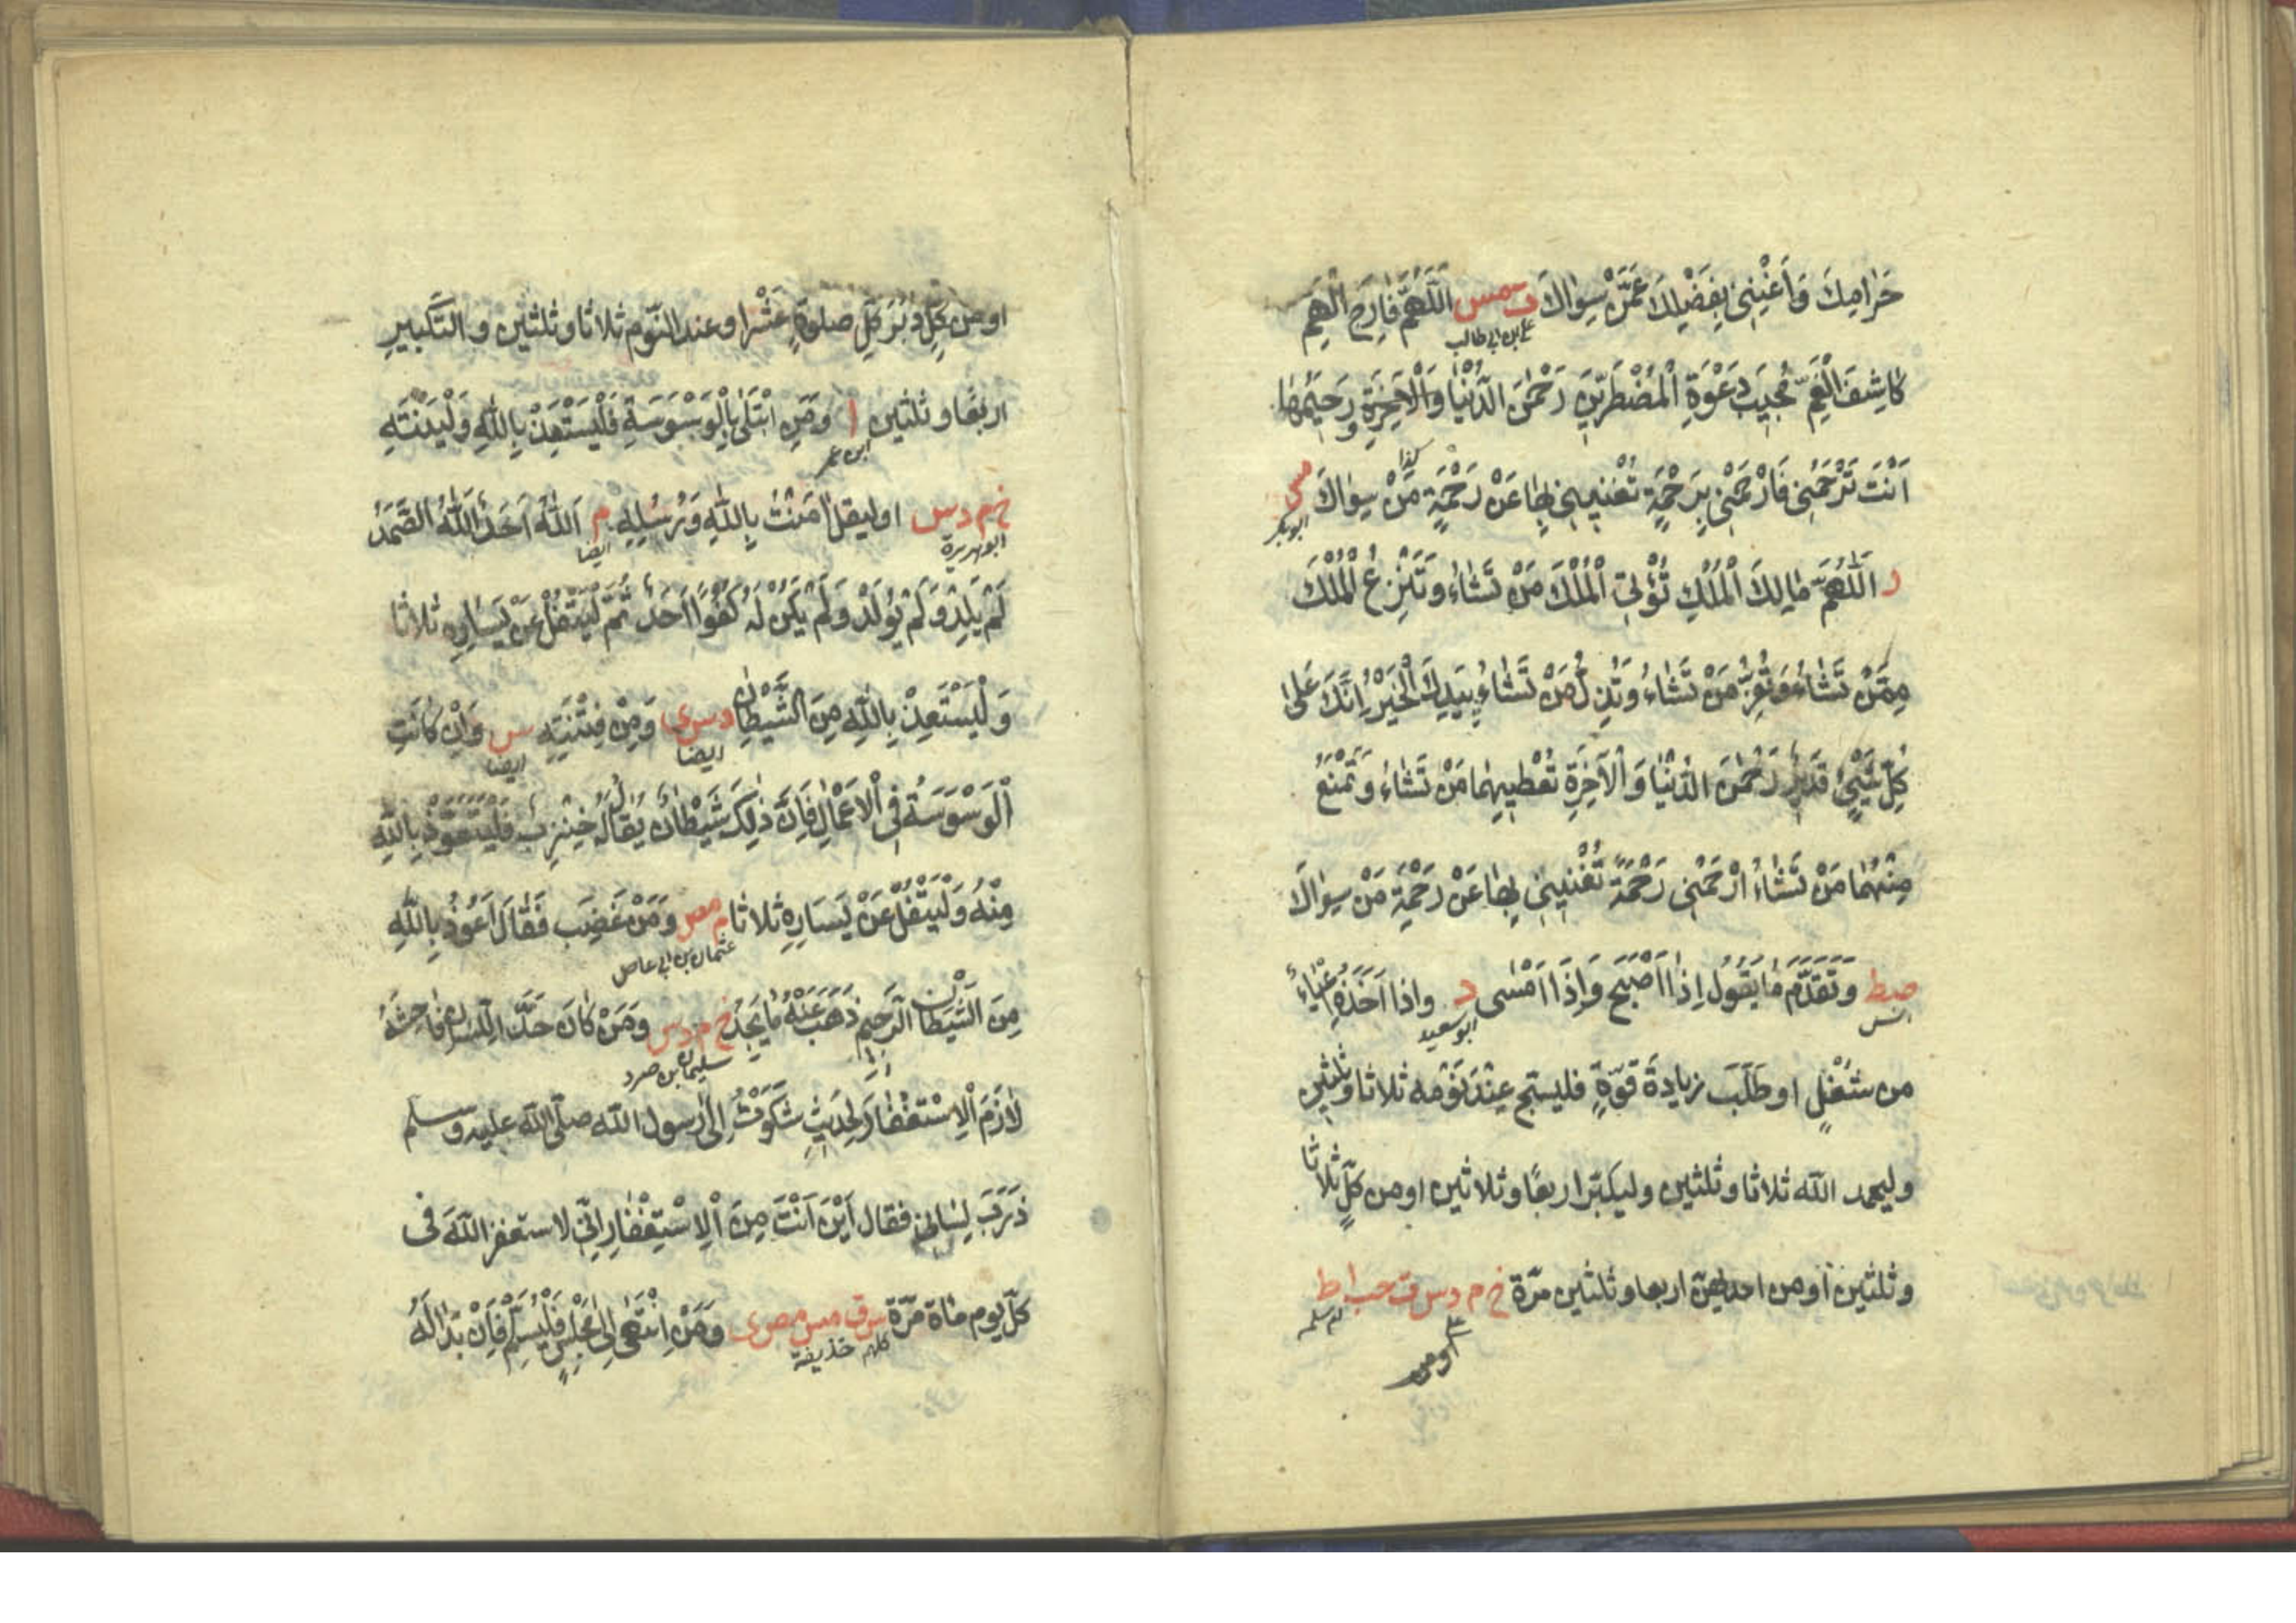 حَرَامِكَ وَاَغْنِنِى بِفَضْلِكَ عَمَّنْ سِوَاكَ ت مس اَللّٰهُمَّ فَارِجَ الْهَمِّ
على بن ابى طالب
كَاشِفَ الْغَمِّ مُجِيبَ دَعْوَةِ الْمُضْطَرِّينَ رَحْمٰنَ الدُّنْيَا وَالْاٰخِرَةِ وَرَحِيمَهُمَا
اَنْتَ تَرْحَمُنِى فَارْحَمْنِى بِرَحْمَةٍ تُغْنِينِى بِهَا عَنْ رَحْمَةِ مَنْ سِوَاكَ مس
كذا
ابو بكر
ر اَللّٰهُمَّ مَالِكَ الْمُلْكِ تُؤْتِى الْمُلْكَ مَنْ تَشَاءُ وَتَنْزِعُ الْمُلْكَ
مِمَّنْ تَشَاءُ وَتُعِزُّ مَنْ تَشَاءُ وَتُذِلُّ مَنْ تَشَاءُ بِيَدِكَ الْخَيْرُ اِنَّكَ عَلٰى
كُلِّ شَيْءٍ قَدِيرٌ رَحْمٰنَ الدُّنْيَا وَالْاٰخِرَةِ تُعْطِيهِمَا مَنْ تَشَاءُ وَتَمْنَعُ
مِنْهُمَا مَنْ تَشَاءُ ارْحَمْنِى رَحْمَةً تُغْنِينِى بِهَا عَنْ رَحْمَةِ مَنْ سِوَاكَ
صط وَتَقَدَّمَ مَا يَقُولُ اِذَا اَصْبَحَ وَاِذَا اَمْسٰى د واذا اَخَذَهُ اِعْيَاءٌ
انس
ابو سعيد
من شُغْلٍ او طَلَبَ زيادةَ قوّةٍ فليسبح عِنْدَ نَوْمه ثلاثا وثلثين
وليحمد الله ثلاثا وثلثين وليكبّر اربعًا وثلاثين او من كلٍّ ثلاثا
وثلثين او من احديهنّ اربعا وثلثين مرّة خ م د س ت حب ا ط
ام سلمه
او من
او من كلٍّ دُبُرَ كلِّ صلوةٍ عَشْرا وعند النّوم ثلاثا وثلثين والتّكبيرِ
اربعًا وثلثين ا ومَنِ ابْتَلٰى بِالْوَسْوَسَةِ فَلْيَسْتَعِذْ بِاللّٰهِ وَلْيَنْتَهِ
ابن عمر
خ م د س او ليقل اٰمَنْتُ بِاللّٰهِ وَرُسُلِهِ م اَللّٰهُ اَحَدٌ اَللّٰهُ الصَّمَدُ
ابو هريرة
ايضا
لَمْ يَلِدْ وَلَمْ يُولَدْ وَلَمْ يَكُنْ لَهُ كُفُوًا اَحَدٌ ثُمَّ لْيَتْفُلْ عَنْ يَسَارِهِ ثلاثا
وَلْيَسْتَعِذْ بِاللّٰهِ مِنَ الشَّيْطَانِ د س ى وَمِنْ فِتْنَتِهِ س وَاِنْ كَانَتِ
ايضا
ايضا
الْوَسْوَسَةُ فِى الْاَعْمَالِ فَاِنَّ ذٰلِكَ شَيْطَانٌ يُقَالُ لَهُ خِنْزِبٌ فَلْيَتَعَوَّذْ بِاللّٰهِ
مِنْهُ وَلْيَتْفُلْ عَنْ يَسَارِهِ ثلاثا م مص وَمَنْ غَضِبَ فَقَالَ اَعُوذُ بِاللّٰهِ
عثمان بن ابى عاص
مِنَ الشَّيْطَانِ الرَّجِيمِ ذَهَبَ عَنْهُ مَا يَجِدُ خ م د س ومَنْ كَانَ حَدَّ اللِّسَانِ فَاحِشَهُ
سليمان بن صرد
لَازَمَ الْاِسْتِغْفَارَ لِحَدِيثِ شَكَوْتُ اِلٰى رسول الله صلّى الله عليه وسلم
ذَرَبَ لِسَانِى فقال اَيْنَ اَنْتَ مِنَ الْاِسْتِغْفَارِ اِنِّى لاستغفر اللّٰهَ فى
كلّ يوم مائة مرّة س ق مس مص ى وَمَنِ انْتَهٰى اِلٰى مَجْلِسٍ فَلْيُسَلِّمْ فَاِنْ بَدَا لَهُ
كلهم حذيفة